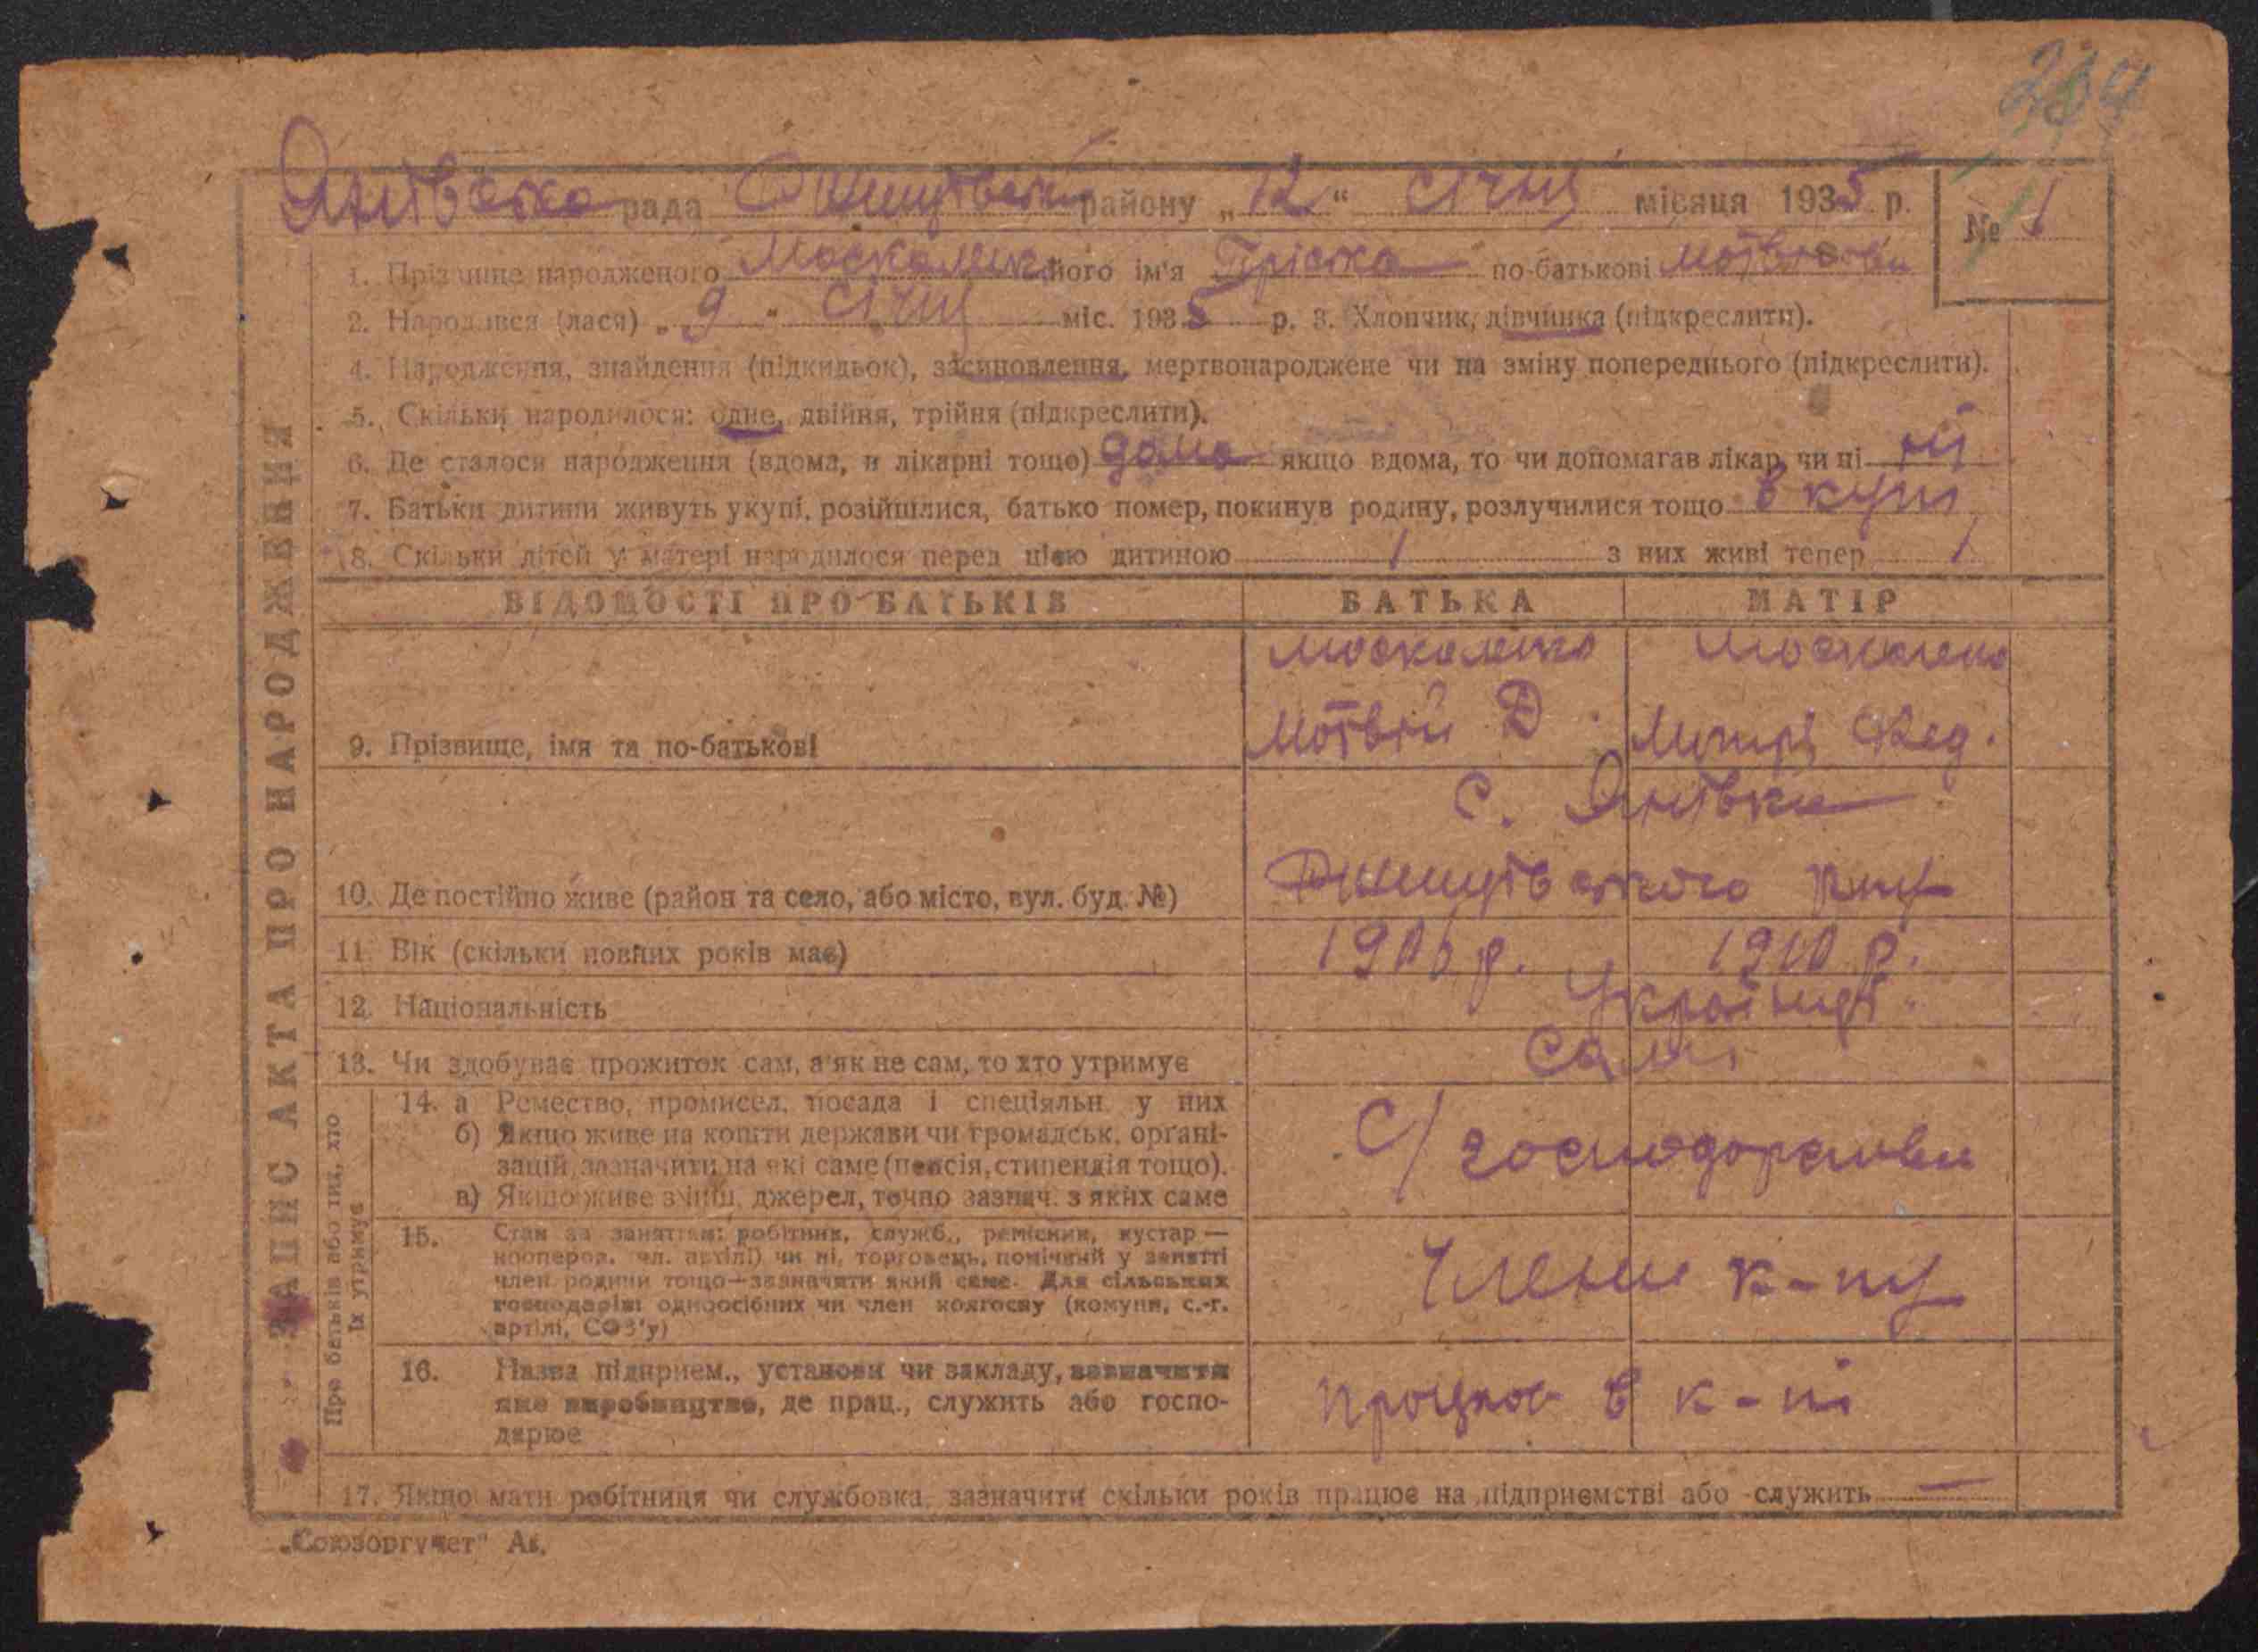 Янівська рада Онишківський району „12“ січня місяця 1935 р.
№ 1
1. Прізвище народженого Москаленко його ім'я Пріська по-батькові Мотвієвн
2. Народився (лася) „9“ січня міс. 1935 р. 3. Хлопчик, дівчинка (підкреслити).
4. Народження, знайдення (підкидьок), засиновлення, мертвонароджене чи на зміну попереднього (підкреслити).
5. Скільки народилося: одне, двійня, трійня (підкреслити).
6. Де сталося народження (вдома, в лікарні тощо) дома якщо вдома, то чи допомагав лікар, чи ні ні
7. Батьки дитини живуть укупі, розійшлися, батько помер, покинув родину, розлучилися тощо в купі
8. Скільки дітей у матері народилося перед цією дитиною 1 з них живі тепер 1
ЗАПИС АКТА ПРО НАРОДЖЕННЯ
ВІДОМОСТІ ПРО БАТЬКІВ БАТЬКА МАТІР
Москаленко Москаленко
9. Прізвище, імя та по-батькові Мотвій Д. Фед.
с. Янівка
10. Де постійно живе (район та село, або місто, вул. буд. №)
11. Вік (скільки повних років має) 1906 р. 1910 р.
12. Національність Українці.
13. Чи здобуває прожиток сам, а як не сам, то хто утримує Самі
Про батьків або тих, хто їх утримує
14. а Ремество, промисел, посада і спеціяльн. у них
б) Якщо живе на кошти держави чи громадськ. організацій, зазначити на які саме (пенсія, стипендія тощо).
в) Якщо живе з інш. джерел, точно зазнач. з яких саме
с/господарстви
15. Стан за заняттям: робітник, служб., ремісник, кустар —
коопероа. чл. артілі) чи ні, торговець, помічний у занятті
член родини тощо—зазначити який саме. Для сільських
господарів: одноосібних чи член колгоспу (комуни, с.-г.
артілі, СОЗ'у)
Члени к-пу
16. Назва підприєм., установи чи закладу, зазначити
яке виробництво, де прац., служить або господарює
працюв в к-пі
17. Якщо мати робітниця чи службовка, зазначити скільки років працює на підприємстві або служить —
„Союзоргучет“